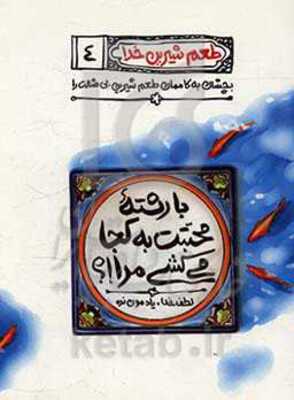 طعم شیرین خدا
٤
بچشان به کاممان طعم شیرین بی مثالت را
با رشتهٔ
محبّتت به کجا
می کشی مرا؟!
لطف خدا، یادمون نره
ketab.ir